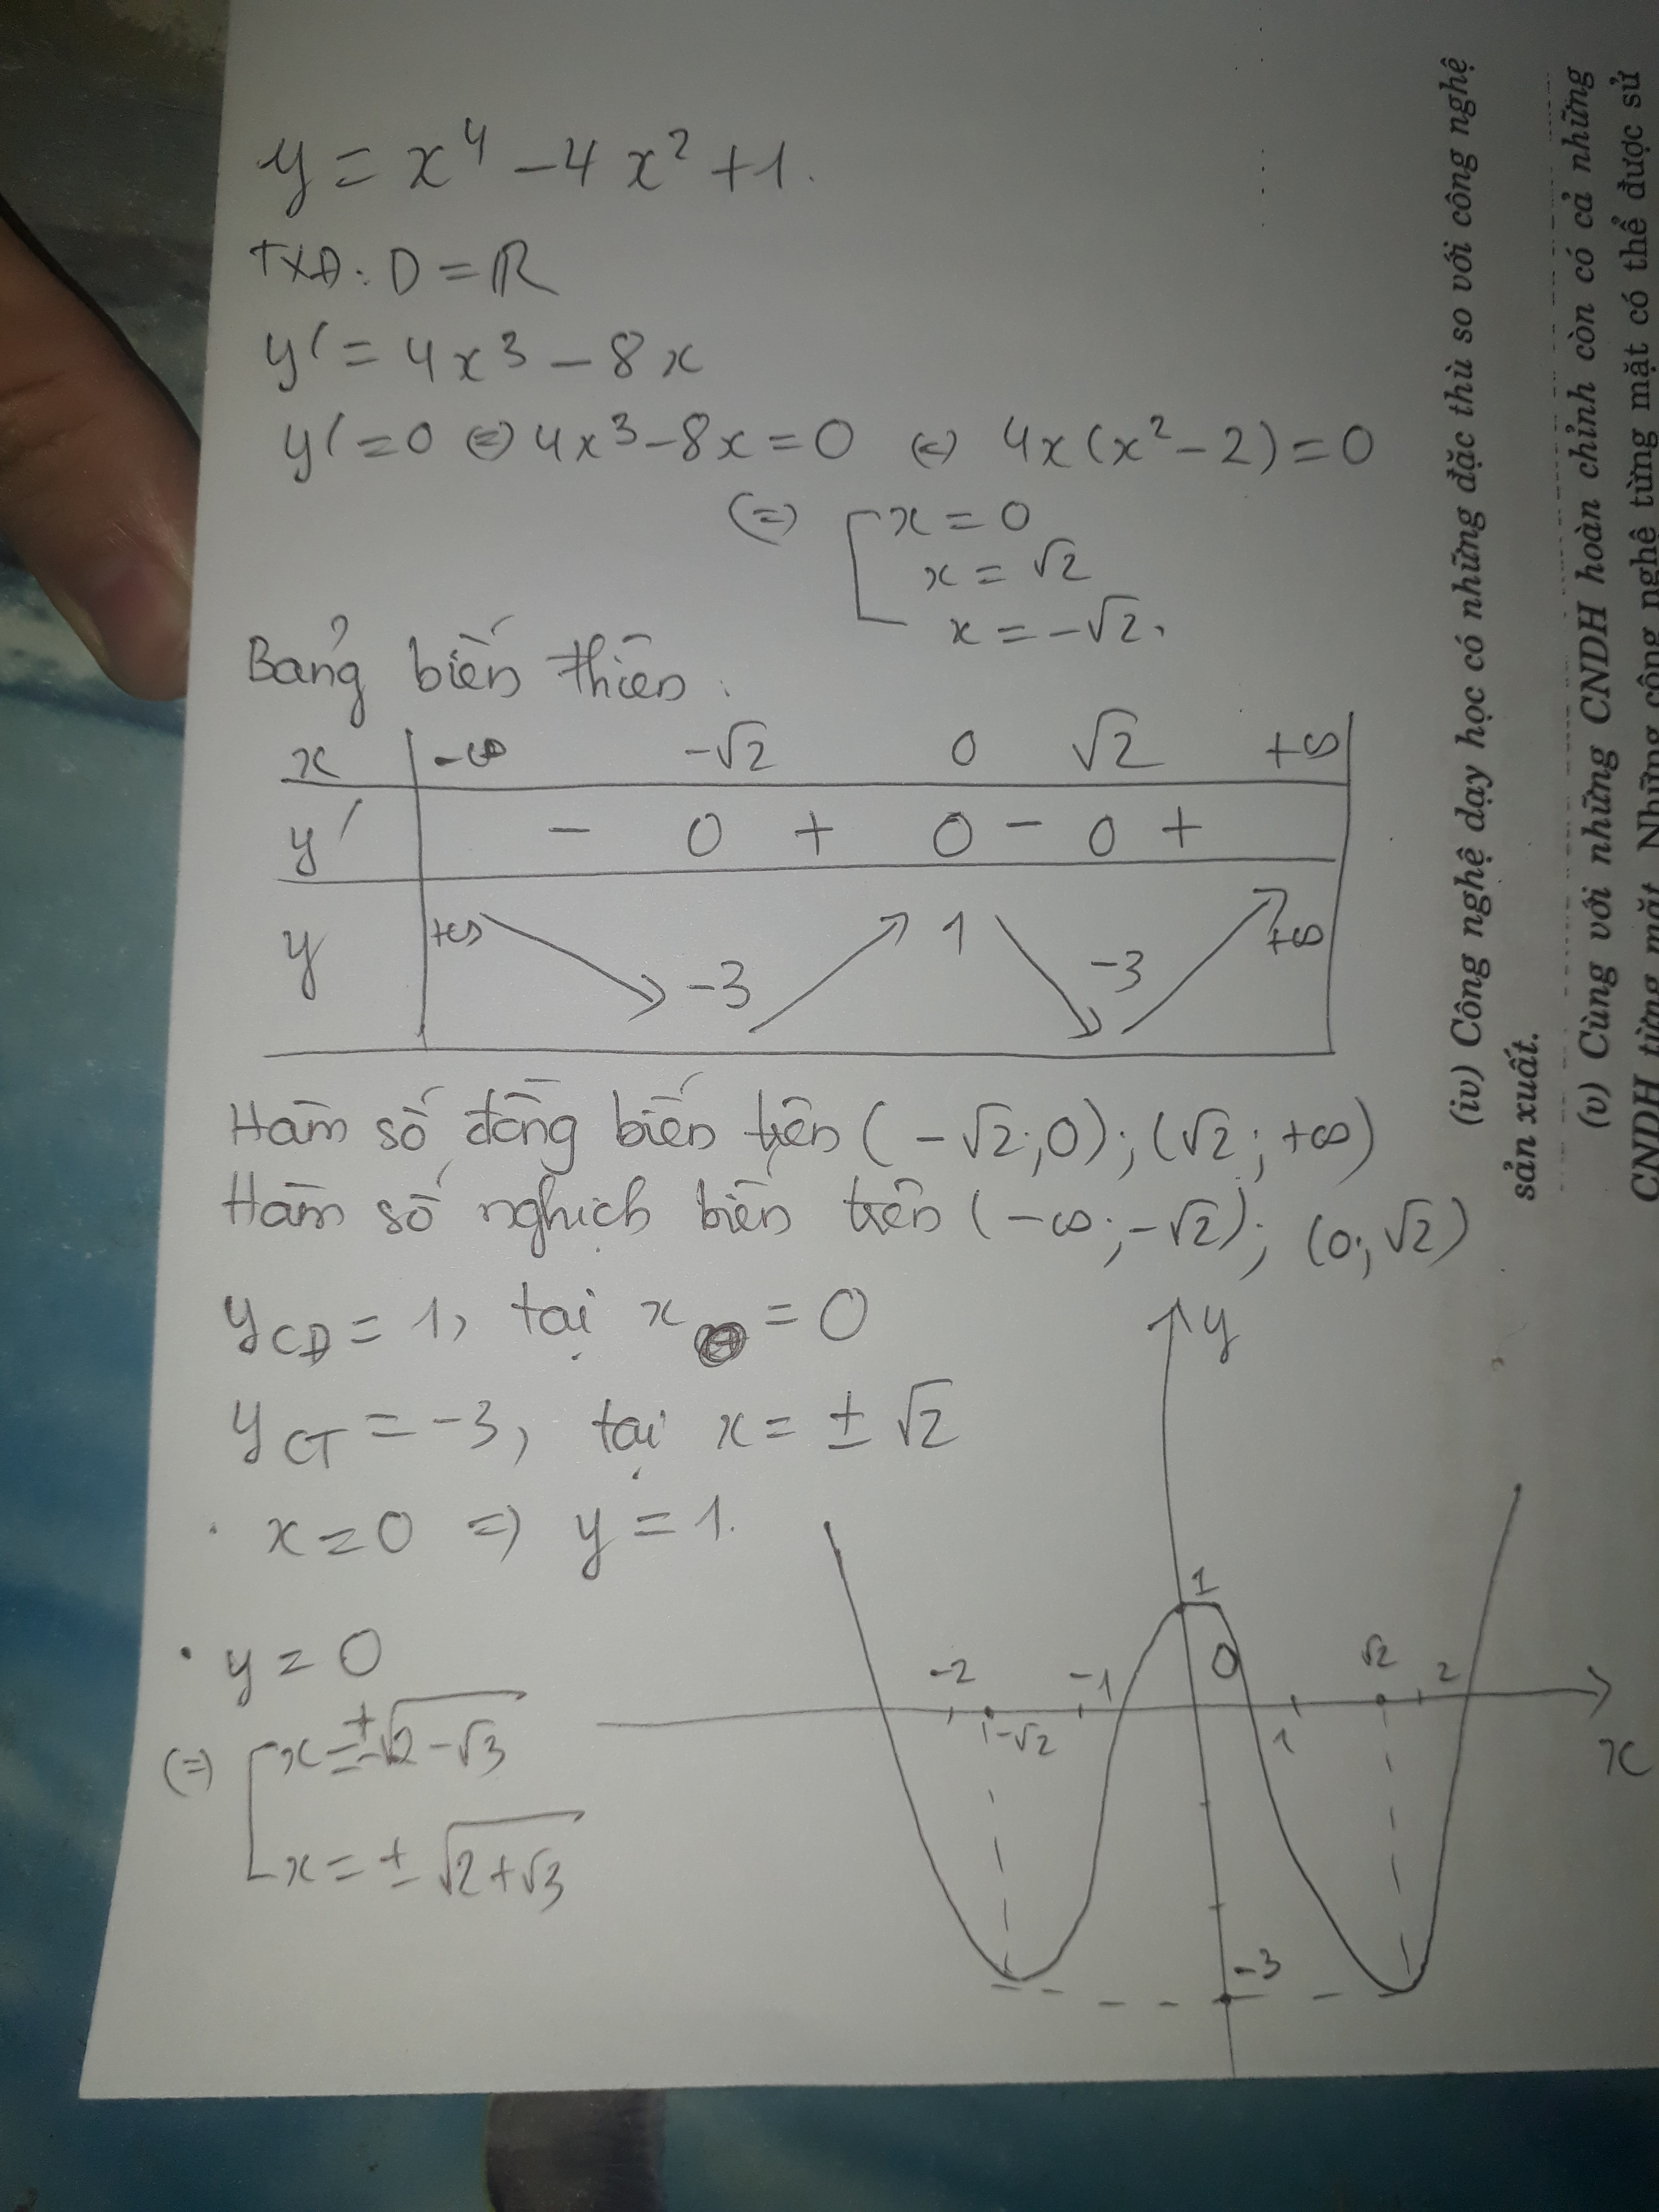 y = x⁴ - 4x² + 1.
TXĐ: D = ℝ
y' = 4x³ - 8x
y' = 0 ⇔ 4x³ - 8x = 0 ⇔ 4x(x² - 2) = 0
⇔ [ x = 0
x = √2
x = -√2.
Bảng biến thiên.
x -∞ -√2 0 √2 +∞
y' - 0 + 0 - 0 +
y +∞ -3 1 -3 +∞
Hàm số đồng biến trên (-√2; 0); (√2; +∞)
Hàm số nghịch biến trên (-∞; -√2); (0; √2)
yCĐ = 1, tại x = 0
yCT = -3, tại x = ± √2
. x = 0 ⇒ y = 1.
. y = 0
⇔ [ x = ±√(2-√3)
x = ± √(2+√3)
y
1
0
-2 -√2 -1 1 √2 2
x
-3
(iv) Công nghệ dạy học có những đặc thù so với công nghệ
sản xuất.
(v) Cùng với những CNDH hoàn chỉnh còn có cả những
CNDH từng mặt. Những công nghệ từng mặt có thể được sử